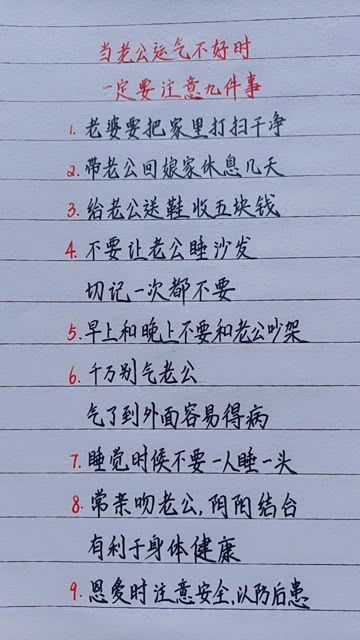 当老公运气不好时
一定要注意九件事
1. 老婆要把家里打扫干净
2. 带老公回娘家休息几天
3. 给老公送鞋收五块钱
4. 不要让老公睡沙发
切记一次都不要
5. 早上和晚上不要和老公吵架
6. 千万别气老公
气了到外面容易得病
7. 睡觉时候不要一人睡一头
8. 常亲吻老公,阴阳结合
有利于身体健康
9. 恩爱时注意安全,以防后患